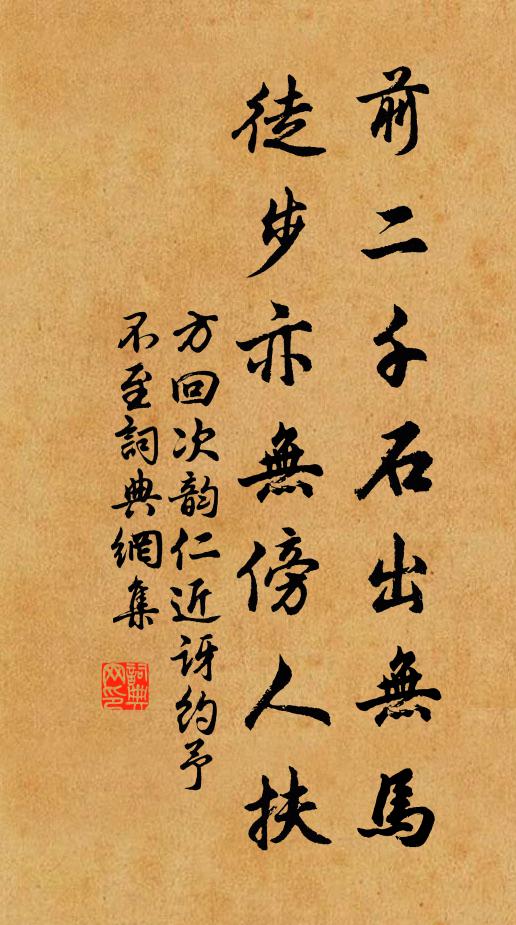 前二千石出無馬
徒步亦無傍人扶
方回次韵仁近訝約予
不至詞典網集
詞典网印